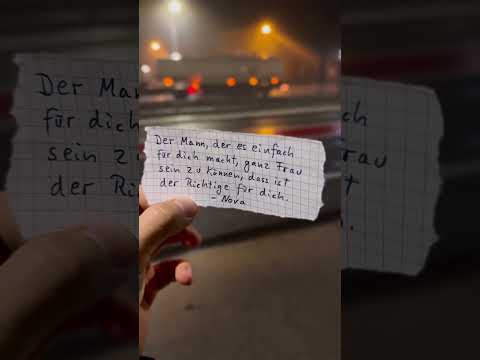 Der Mann, der es einfach
für dich macht, ganz Frau
sein zu können, dass ist
der Richtige für dich.
- Nova